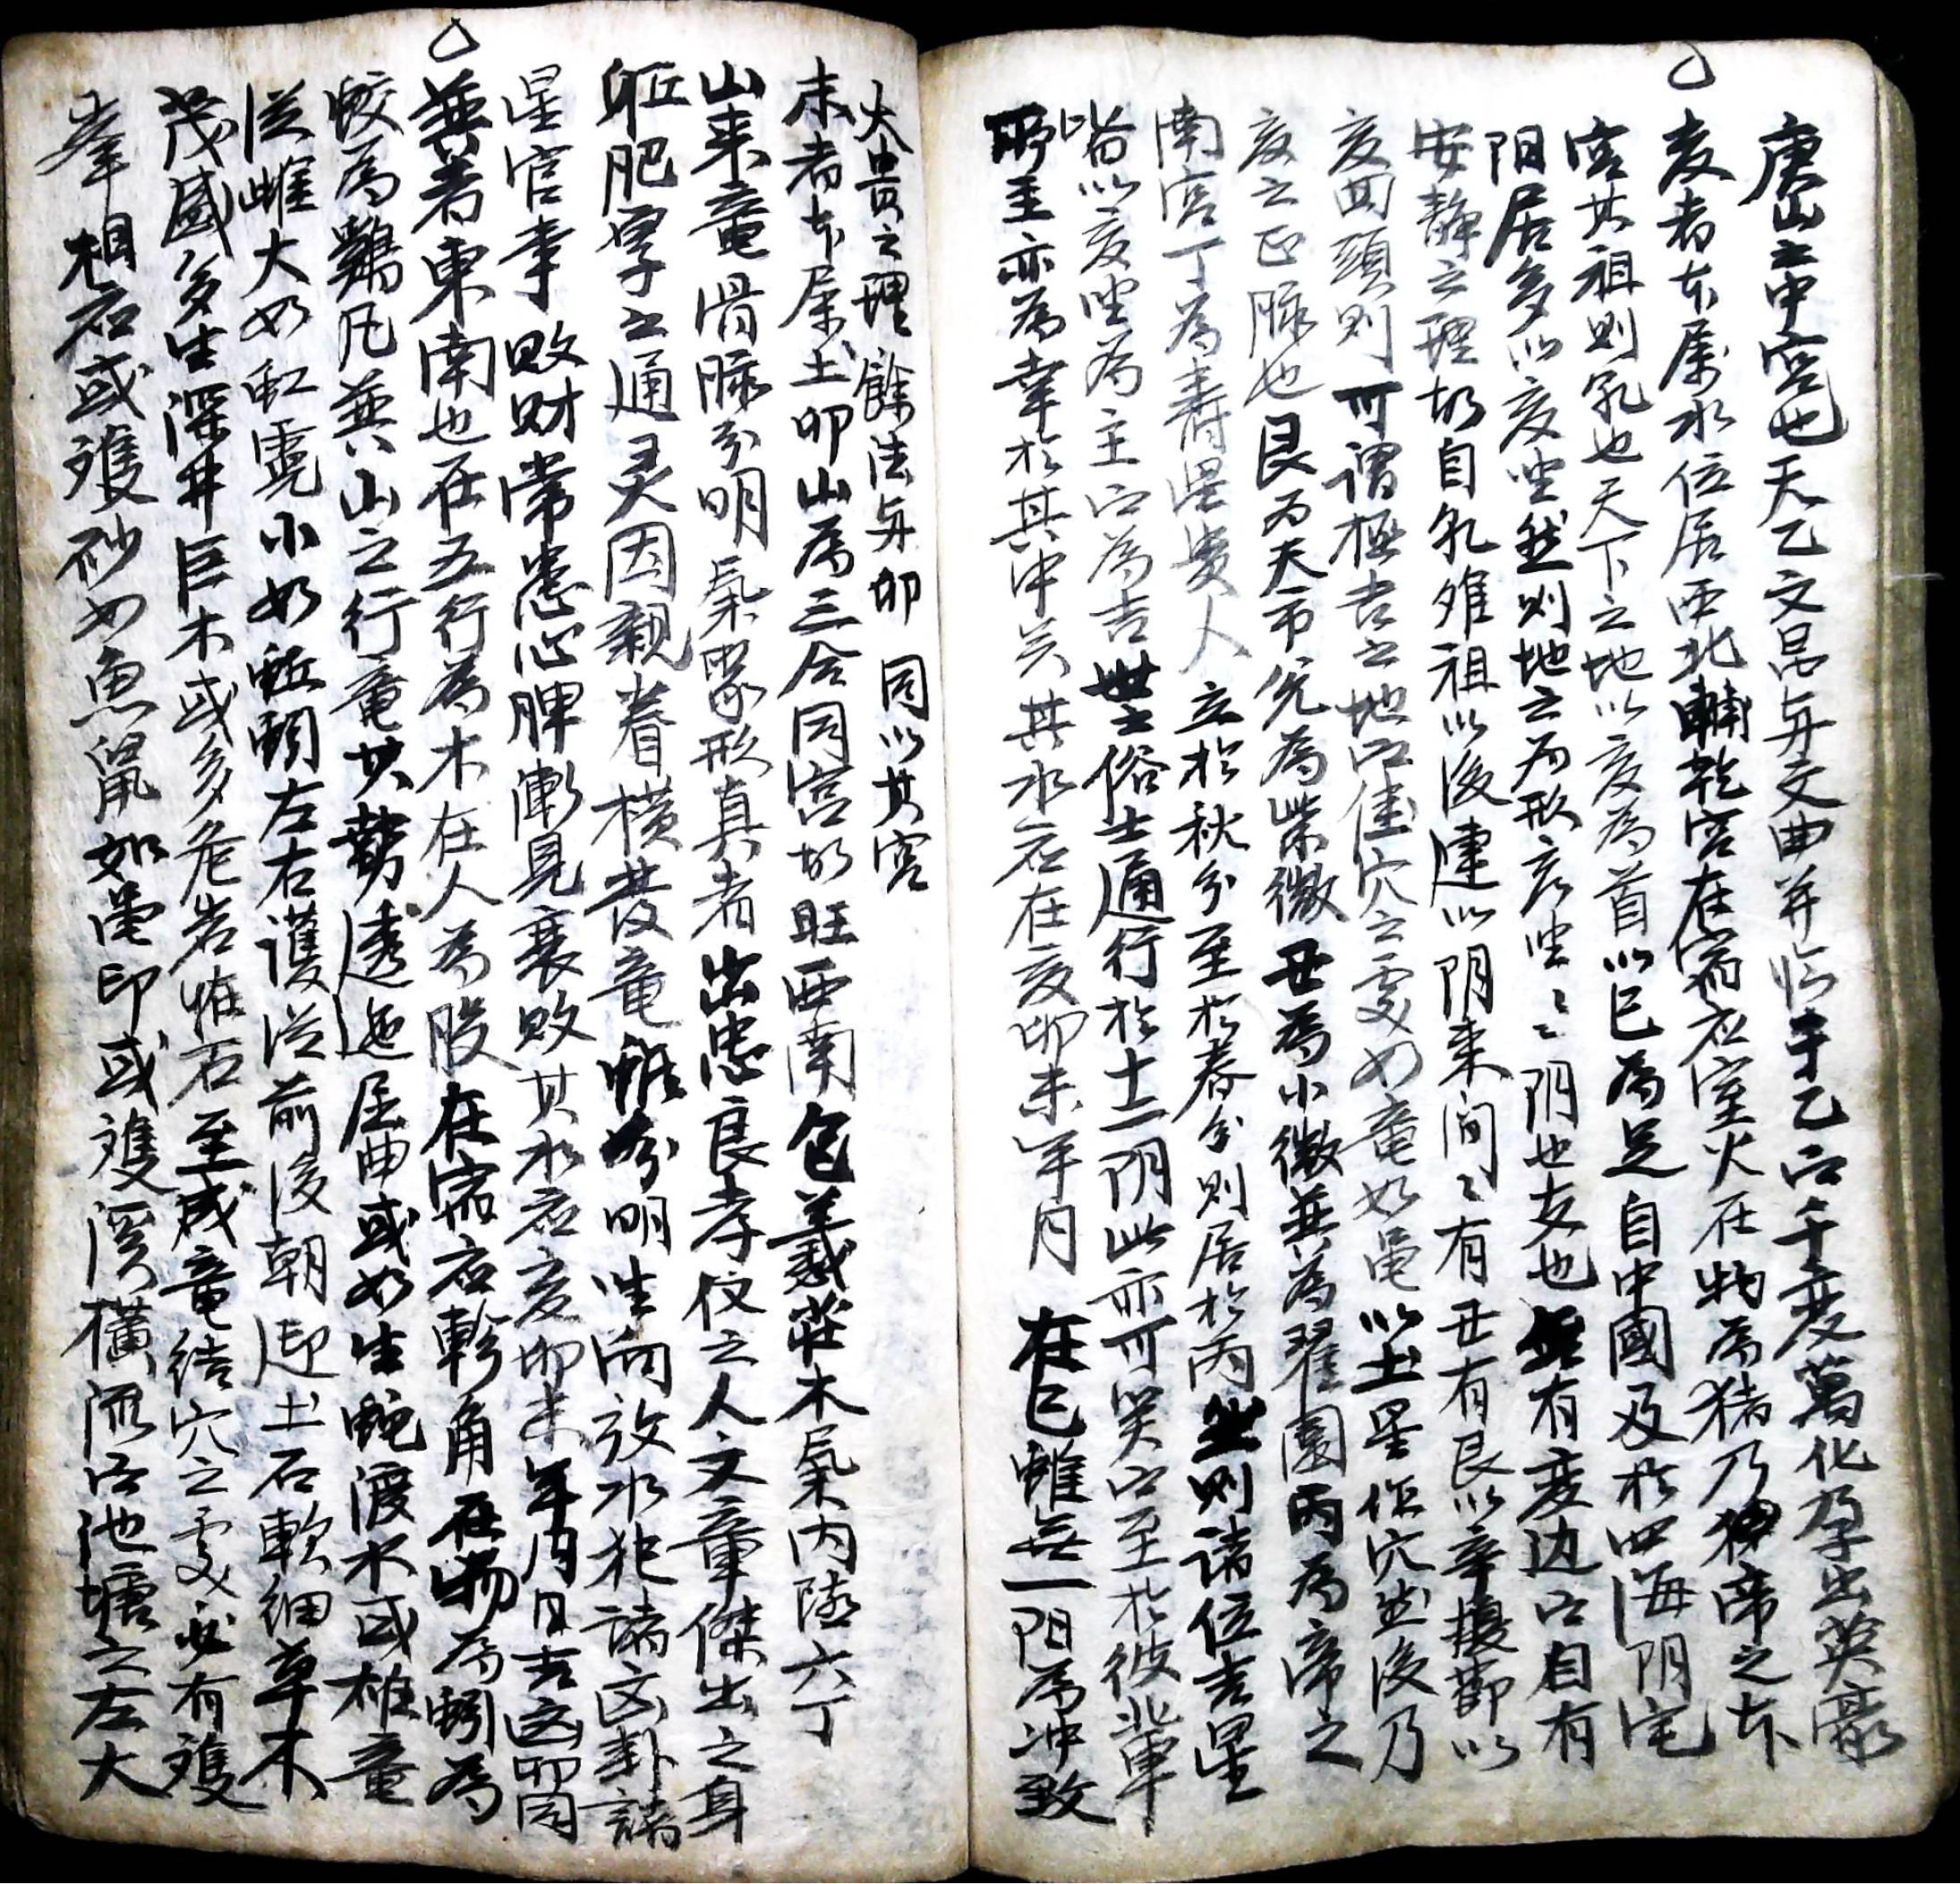 唐山之中宮也天乙文昌与文曲并臨于乙㕥千変萬化孕出英豪
亥者本属水位居西北輔乾宮在宿應室火在物為猪乃神帝之本
宮其祖則乳也天下之地以亥為首以巳為足自中國及於四海阴宅
阳居多以亥坐然則地之為形亥坐〻阴也亥也無有変边㕥自有
安静之理故自乳雖祖以後連以阴来间〻有丑有艮以辛擾節以
亥回頭則可謂極吉之地㕥佳穴之処如竜如黽以土星作穴然後乃
亥之正脉也艮為天市兌為紫微丑為小微巽為翟園丙為帝之
南宮丁為寿星貴人立於秋分至於春分則居於丙然則諸位吉星
皆以亥坐為主㕥為吉世之俗士通行於十二阴此亦可哭㕥至於彼輩
所主亦為掌於其中矣其水應在亥卯未年月在巳雖無一阳為冲致
大貴之理餘法与卯同以其宮
未者本属土卯山為三合同宮故旺西南包羲莊木氣内陸六丁
山来竜骨脉分明氣象形真者出忠良孝仅之人文章傑出之身
肛肥厚之通灵因親眷横發竜雖分明坐向放水犯諸凶卦諸
星官李敗財常患心脾漸見衰敗其水應亥卯未年月日吉凶卯同
巽者東南也在五行為木在人為股在宿應軫角在物為蚓為
蛟為鷄凡巽山之行竜其勢逶迤屈曲或如生蛇渡水或雄竜
従雌大如虹霓小如蚯蚓左右護従前後朝迎土石軟細草木
茂盛多生深井巨木或多危岩惟石至成竜結穴之処必有雙
峯相應或雙砂如魚鼠如黽印或雙溪横流㕥池塘之左大